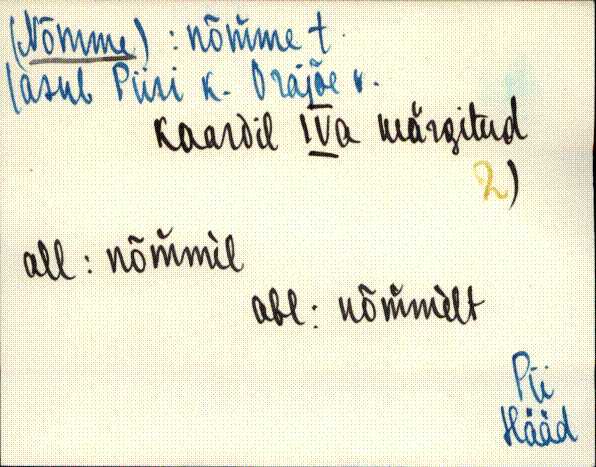 (Nõmme) : nõm̆me t.
(asub Piiri k. Orajõe v.
Kaardil IVa märgitud
2)
all : nõm̆mil
abl : nõm̆mèlt
Pii
Hääd